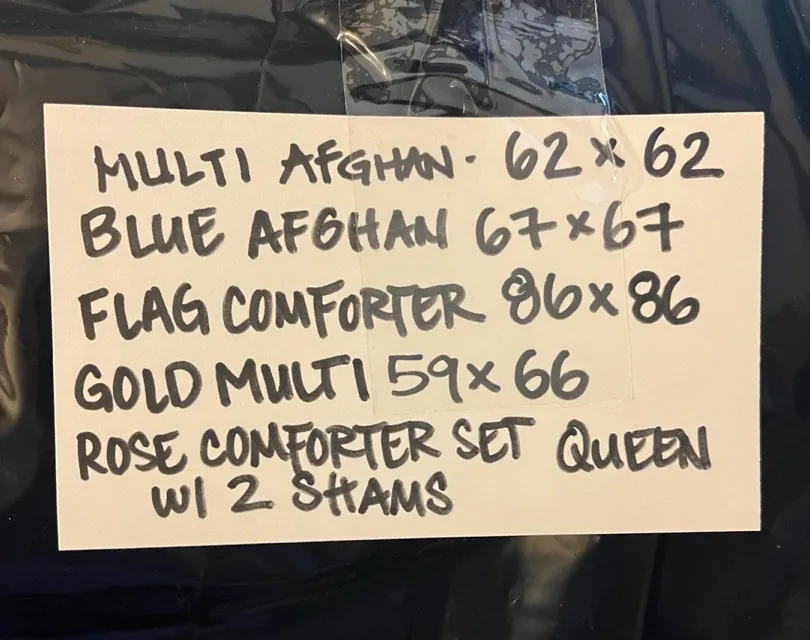 MULTI AFGHAN - 62 x 62
BLUE AFGHAN 67x67
FLAG COMFORTER 86x86
GOLD MULTI 59x 66
ROSE COMFORTER SET QUEEN
W/ 2 SHAMS